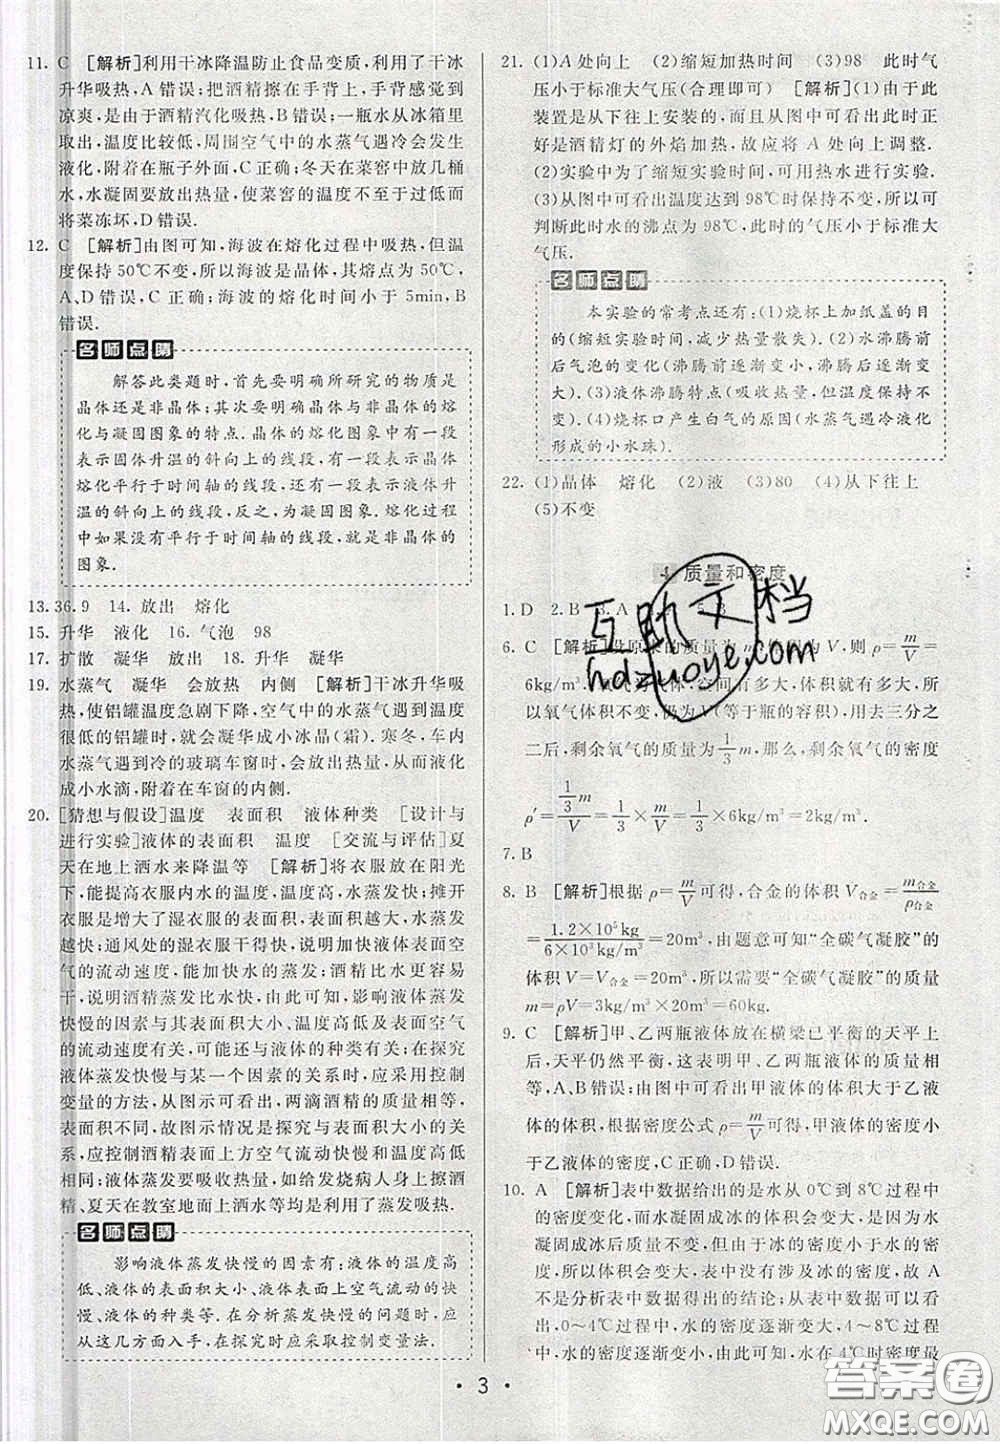 11. C [解析]利用干冰降温防止食品变质,利用了干冰
升华吸热,A错误;把酒精擦在手背上,手背感觉到
凉爽,是由于酒精汽化吸热,B错误;一瓶水从冰箱里
取出,温度比较低,周围空气中的水蒸气遇冷会发生
液化,附着在瓶子外面,C正确;冬天在菜窖里放几桶
水,水凝固要放出热量,使菜窖的温度不至于过低而
将菜冻坏,D错误.
12. C [解析]由图可知,海波在熔化过程中吸热,但温
度保持50℃不变,所以海波是晶体,其熔点为50℃,
A、D错误,C正确;海波的熔化时间小于5min,B
错误.
名师点睛
解答此类题时,首先要明确所研究的物质是
晶体还是非晶体;其次要明确晶体与非晶体的熔
化与凝固图象的特点.晶体的熔化图象中有一段
表示固体升温的斜向上的线段,还有一段表示晶体
熔化平行于时间轴的线段,还有一段表示液体升
温的斜向上的线段,反之,为凝固图象.熔化过程
中如果没有平行于时间轴的线段,则是非晶体的
图象.
13. 36.9 14. 放出 熔化
15. 升华 液化 16. 气泡 98
17. 扩散 凝华 放出 18. 升华 凝华
19. 水蒸气 凝华 会放热 内侧 [解析]干冰升华吸
热,使铝罐温度急剧下降,空气中的水蒸气遇到温度
很低的铝罐时,就会凝华成小冰晶(霜).寒冬,车内
水蒸气遇到冷的玻璃车窗时,会放出热量,从而液化
成小水滴,附着在车窗的内侧.
20. [猜想与假设]温度 表面积 液体种类 [设计与
进行实验]液体的表面积 温度 [交流与评估]夏
天在地上洒水来降温等 [解析]将衣服放在阳光
下,能提高衣服内水的温度,温度高,水蒸发快;摊开
衣服是增大了湿衣服的表面积,表面积越大,水蒸发
越快;通风处的湿衣服干得快,说明加快液体表面空
气的流动速度,能加快水的蒸发;酒精比水更容易
干,说明酒精蒸发比水快,由此可知,影响液体蒸发
快慢的因素与其表面积大小、温度高低及表面空气
的流动速度有关,可能还与液体的种类有关;在探究
液体蒸发快慢与某一个因素的关系时,应采用控制
变量的方法,从图示可知,两滴酒精的质量相等,表
面积不同,故图示情况是探究与表面积大小的关
系,应控制酒精表面上方空气流动快慢和温度高低
相同.液体蒸发要吸收热量,如给发烧病人身上擦酒
精、夏天在教室地面上洒水等均是利用了蒸发吸热.
名师点睛
影响液体蒸发快慢的因素有:液体的温度高
低、液体的表面积大小、液体表面上空气流动的快
慢、液体的种类等.在分析蒸发快慢的问题时,应
从这几方面入手,在探究时应采取控制变量法.
21. (1)A处向上 (2)缩短加热时间 (3)98 此时气
压小于标准大气压(合理即可) [解析](1)由于此
装置是从下往上安装的,而从图中可看出此时正好
好是酒精灯的外焰加热,故应将A处向上调整.
(2)实验中为了缩短实验时间,可用热水进行实验.
(3)从图中可看出温度达到98℃时保持不变,所以可
判断此时水的沸点为98℃,此时的气压小于标准大
气压.
名师点睛
本实验的常考点还有:(1)烧杯上加纸盖的目
的(缩短实验时间,减少热量散失).(2)水沸腾前
后气泡的变化(沸腾前逐渐变小,沸腾后逐渐变
大).(3)液体沸腾特点(吸收热量,但温度保持不
变).(4)烧杯口产生白气的原因(水蒸气遇冷液化
形成的小水珠).
22. (1)晶体 熔化 (2)液 (3)80 (4)从下往上
(5)不变
质量和密度
1. D 2. B 3. A 5. B
6. C [解析]设原来的质量为m,体积为V,则ρ=m/V=
6kg/m³.氧气是气体,空间有多大,体积就有多大,所
以氧气体积不变,仍为V(等于瓶的容积),用去三分之
二后,剩余氧气的质量为1/3 m,那么,剩余氧气的密度
ρ′=(1/3 m)/V=1/3×m/V=1/3×6kg/m³=2kg/m³.
7. B
8. B [解析]根据ρ=m/V可得,合金的体积V合金=m合金/ρ合金
=(1.2×10⁵kg)/(6×10³kg/m³)=20m³,由题意可知“全碳气凝胶”的
体积V=V合金=20m³,所以需要“全碳气凝胶”的质量
m=ρV=3kg/m³×20m³=60kg.
9. C [解析]甲、乙两瓶液体放在横梁已平衡的天平上
后,天平仍然平衡,这表明甲、乙两瓶液体的质量相
等,A、B错误;由图中可看出甲液体的体积大于乙液
体的体积,根据密度公式ρ=m/V可得,甲液体的密度小
于乙液体的密度,C正确,D错误.
10. A [解析]表中数据给出的是水从0℃到8℃过程中
的密度变化,而水凝固成冰的体积会变大,所以水
凝固成冰后质量不变,冰的密度小于水的密度,这
与实际情况相符,但表中没有涉及冰的密度,故A
不是分析表中数据得出的结论;从表中数据可以看
出,0~4℃过程中,水的密度逐渐变大,4~8℃过程
中,水的密度逐渐变小,由此可知,水在4℃时密度最
3
互助文档
hdzuoye.com
答案圈
MXQE.COM